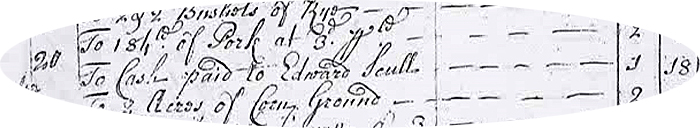 292 Bushels of Rye
To 184 lb of Pork at 3d p ld 2
20 To Cash paid to Edward Scull 1 18
To 2 Acres of Corn Ground 2